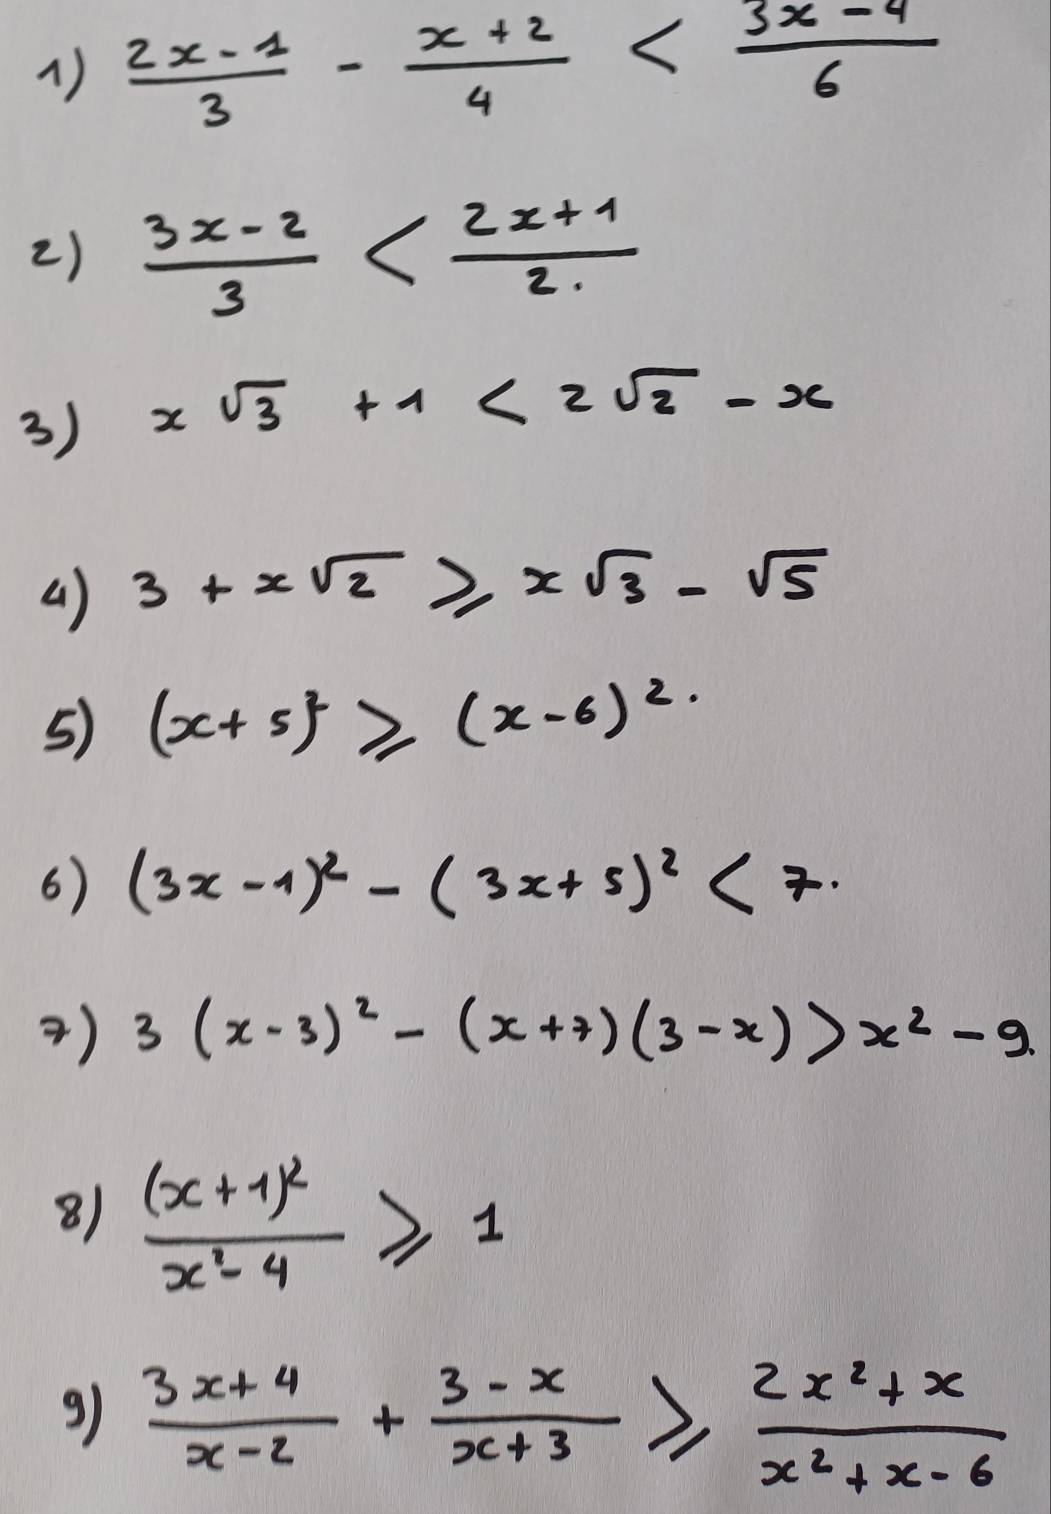 1) (2x-1)/3 - (x+2)/4 < (3x-4)/6
2) (3x-2)/3 < (2x+1)/2.
3) x√3 +1 < 2√2 - x
4) 3 + x√2 ⩾ x√3 - √5
5) (x+5)² ⩾ (x-6)².
6) (3x-1)² - (3x+5)² < 7.
7) 3(x-3)² - (x+7)(3-x) > x² - 9.
8) (x+1)²/(x²-4) ⩾ 1
9) (3x+4)/(x-2) + (3-x)/(x+3) ⩾ (2x²+x)/(x²+x-6)